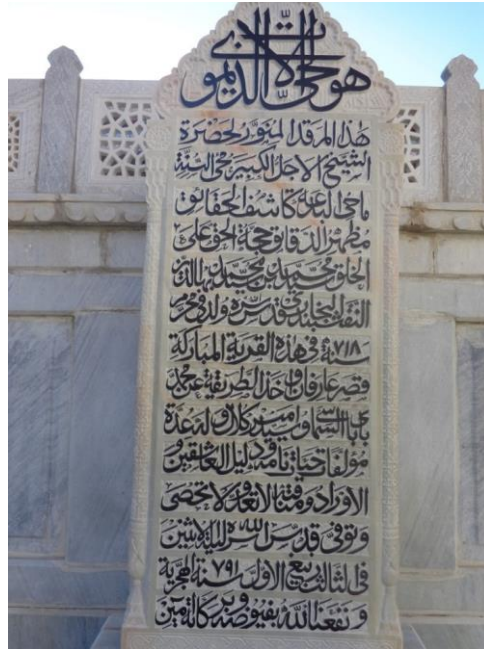 هو الحي الذي لا يموت
هذا المرقد المنور لحضرة
الشيخ الاجل الكبير محي السنة
ماحي البدعة كاشف الحقائق
مظهر الدقائق حجة الحق على
الخلق محمد بن محمد بهاء الدين
النقشبندي البخاري قدس سره ولد في محرم
سنة ٧١٨ في هذه القرية المباركة
قصر عارفان واخذ الطريقة عن محمد
بابا السماسي وسيد امير كلال وله عدة
مؤلفات حياتنامه ودليل العاشقين و
الاوراد ومناقبه لا تعد ولا تحصى
وتوفي قدس الله سره ليلة الاثنين
في ثالث ربيع الاول سنة ٧٩١ الهجرية
ونفعنا الله بفيوضه وبركاته آمين